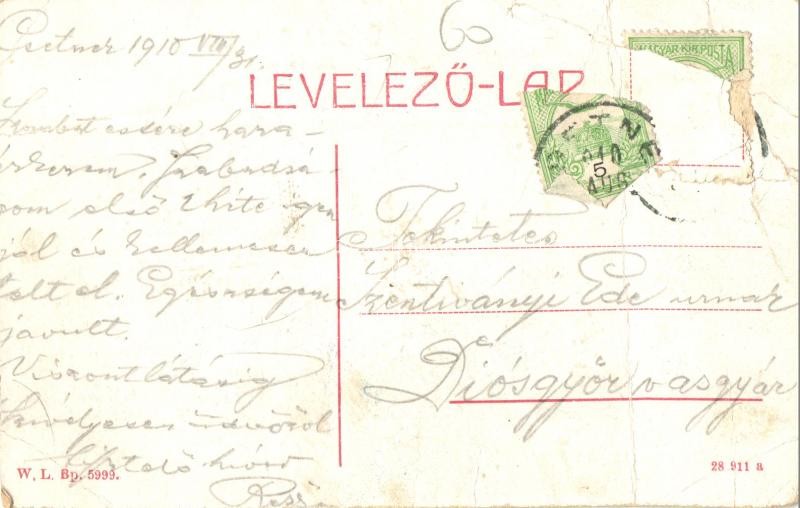 60
Csetnek 1910 VIII/31.
LEVELEZŐ-LAP
MAGYAR KIR. POSTA
5
Szombat estére haza-
érkezem. Szabadsá-
gom első hite igen
jól és kellemesen
telt el. Egészségem
javult.
Viszontlátásig
szívélyesen üdvözöl
híved
Tekintetes
Szentiványi Ede urnak
Diósgyőr vasgyár
W. L. Bp. 5999.
28 911 a